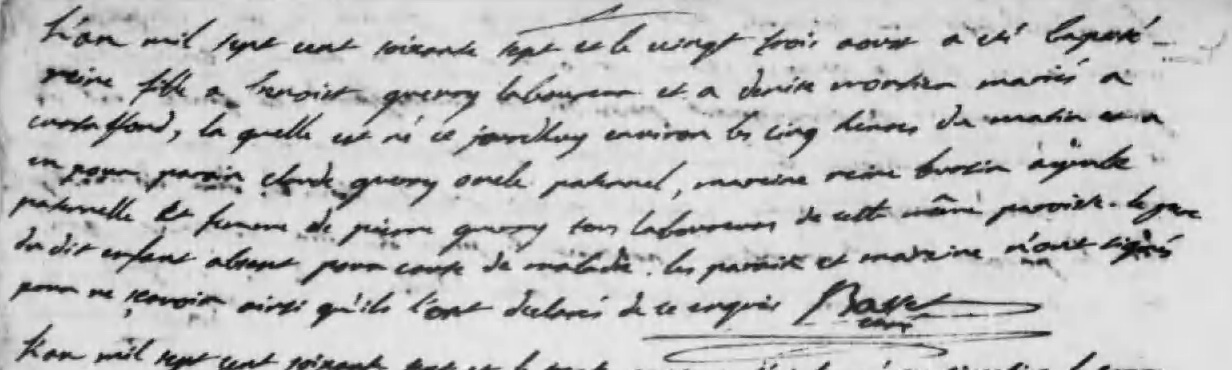 L'an mil sept cent soixante sept et le vingt trois aout a eté baptisé
reine fille a benoist guerry laboureur et a denise monsieu mariés a
curtaffond, la quelle est né ce jourdhuy environ les cinq heures du matin et a
eu pour parain claude guerry oncle paternel, mareine reine burtin ayeule
paternelle et femme de pierre guerry tous laboureurs de cette même paroisse. le pere
du dit enfant absent pour cause de maladie. les parain et mareine n'ont signés
pour ne scavoir ainsi qu'ils l'ont declarés de ce enquis Basset
curé
L'an mil sept cent soixante sept et le